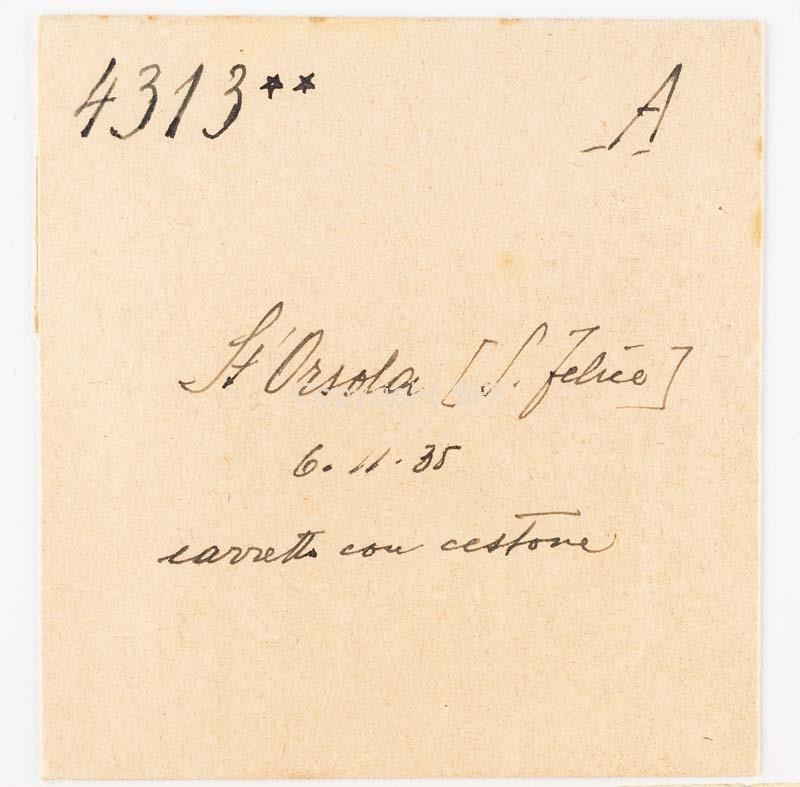 4313** A
St'Orsola [S. Felice]
6. 11. 35
carretto con cestone